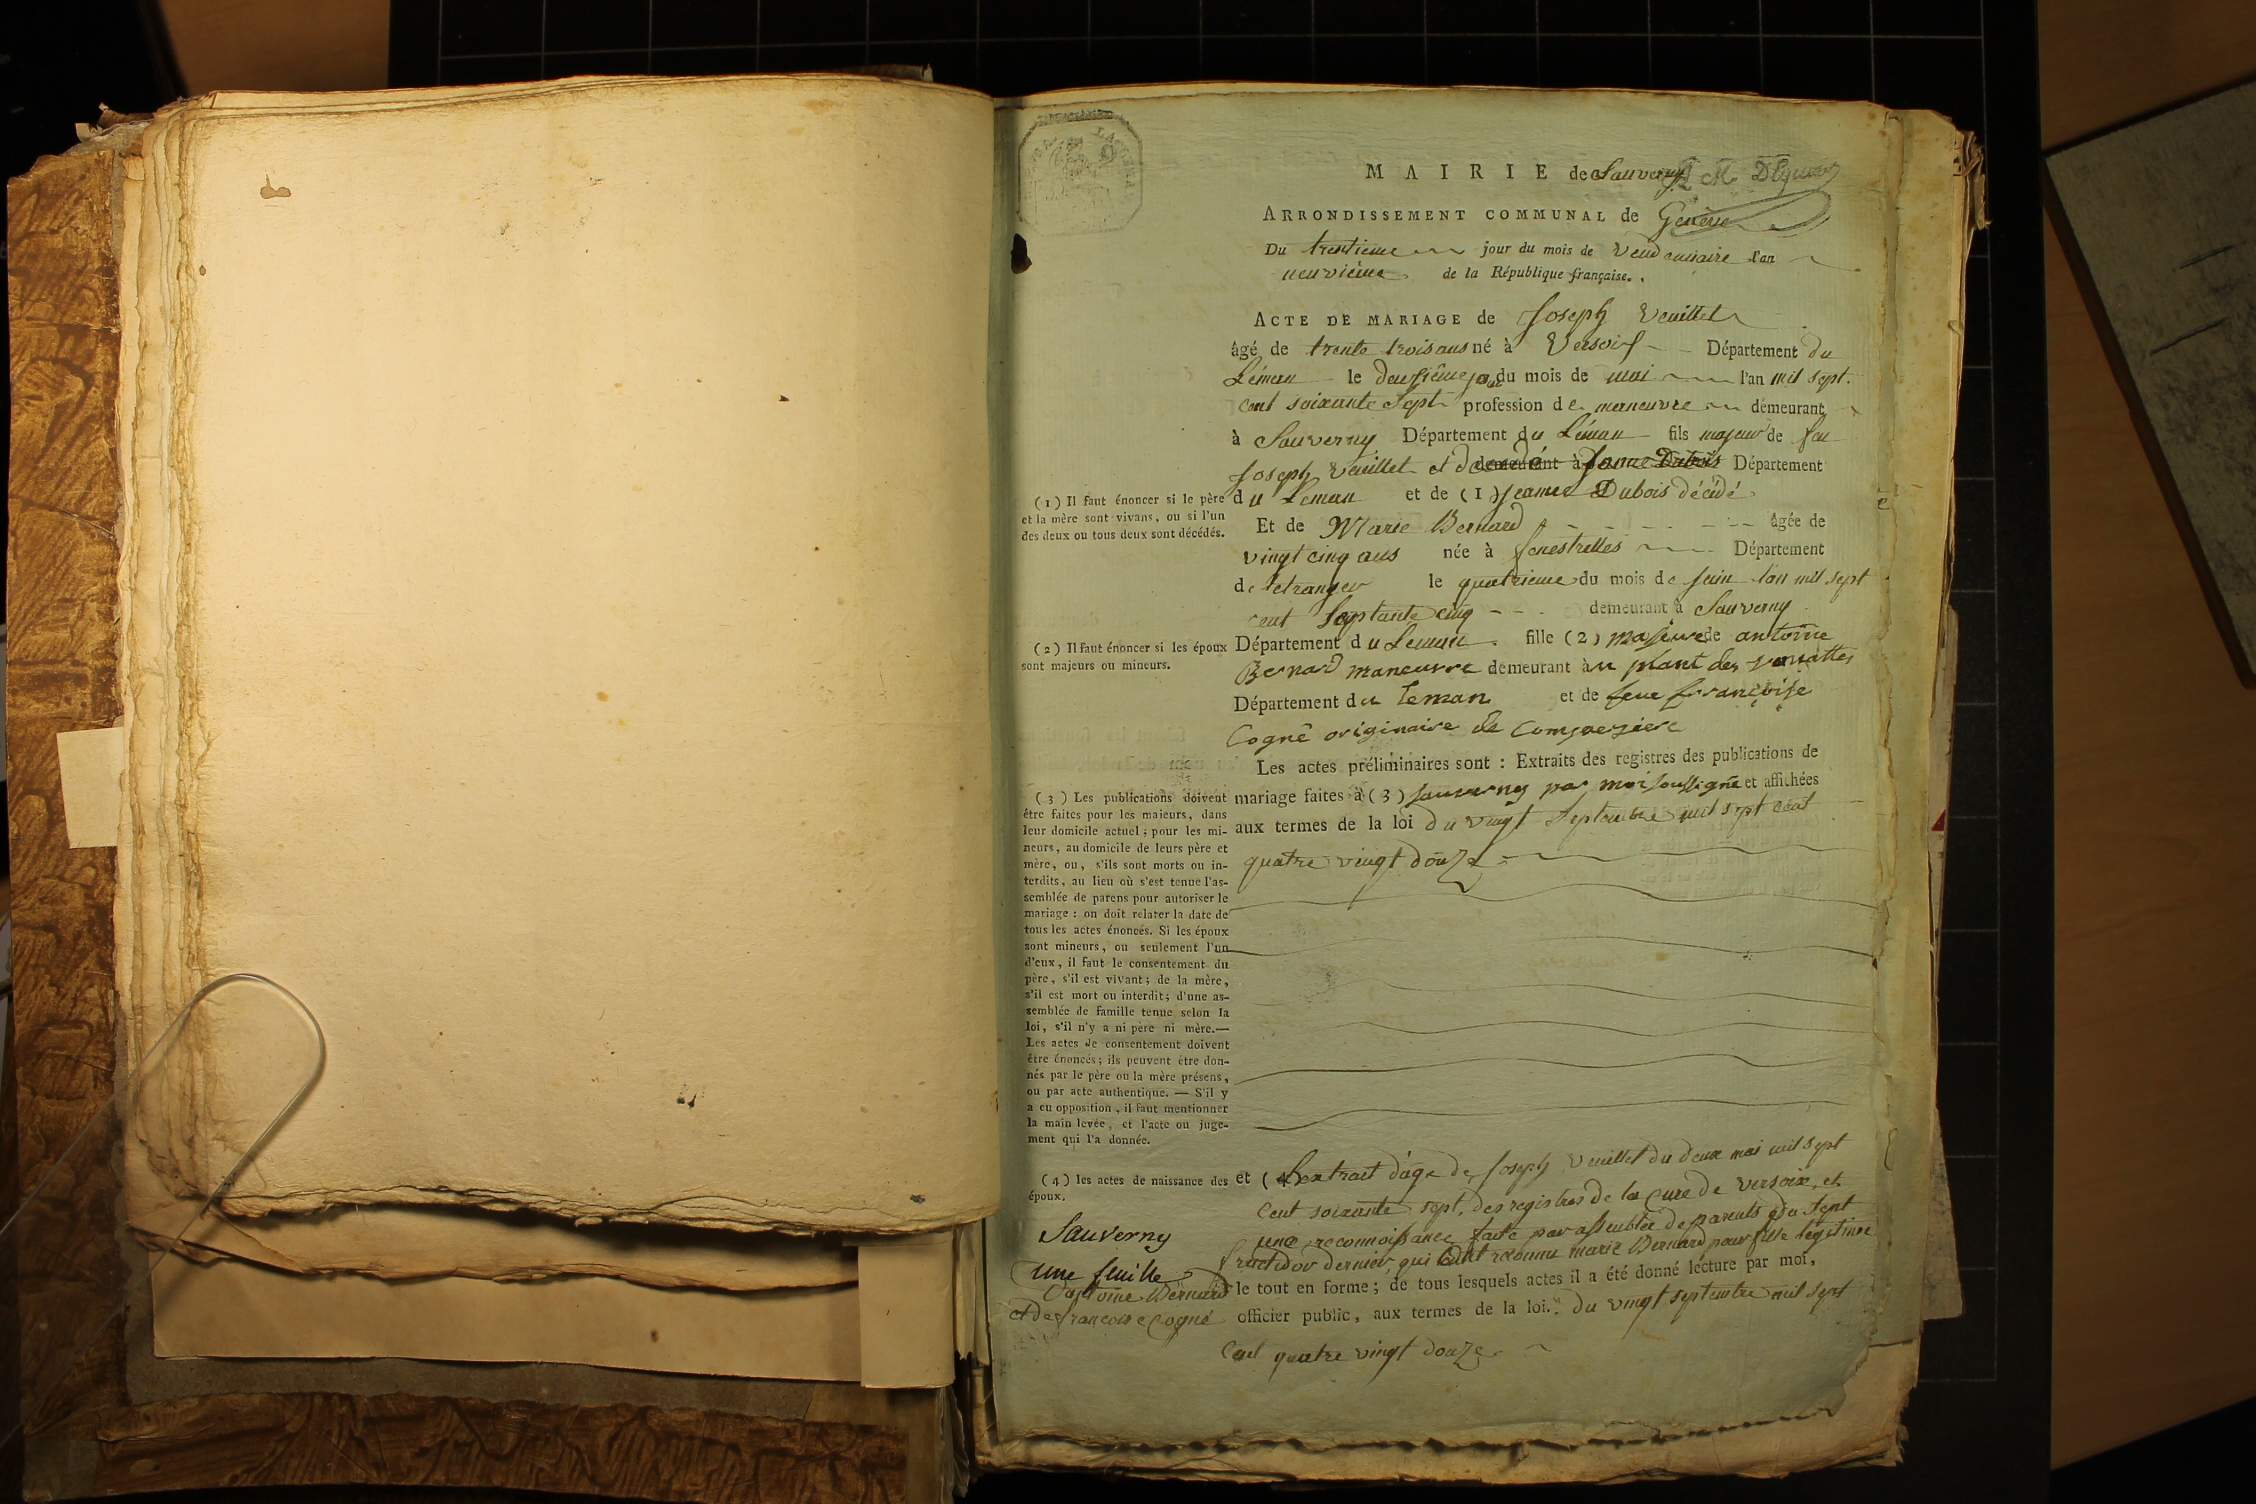 MAIRIE de Sauverny
ARRONDISSEMENT COMMUNAL de Genève
Du trentieme jour du mois de Vendemiaire l'an
neuvième de la République française.
ACTE DE MARIAGE de Joseph Veuillet
âgé de trente trois ans né à Versoix Département du
Léman le deuxième jour du mois de mai l'an mil sept
cent soixante sept profession de maneuvre demeurant
à Sauverny Département du Léman fils majeur de feu
Joseph Veuillet et demeurant à Dubois Département
du Leman et de (1) Jeanne Dubois décédé
Et de Marie Bernard âgée de
vingt cinq ans née à fenestrelles Département
de letranger le quatrieme du mois de Juin l'an mil sept
cent septante cinq demeurant à Sauverny
Département du Leman fille (2) majeure de antoine
Bernard maneuvre demeurant au plant des
Département du Leman et de feue françoise
Cogné originaire de Compesiere
Les actes préliminaires sont : Extraits des registres des publications de
mariage faites à (3) Sauverny par moi soussigné et affichées
aux termes de la loi du vingt Septembre mil sept cent
quatre vingt douze
et (4) Lextrait d'âge de Joseph Veuillet du deux mai mil sept
Cent soixante sept, des registres de la Cure de versoix, et
une reconnoissance faite par assemblée de parents du sept
fructidor dernier, qui ont reconnu marie Bernard pour fille legitime
le tout en forme ; de tous lesquels actes il a été donné lecture par moi,
officier public, aux termes de la loi. du vingt septembre mil sept
Cent quatre vingt douze
(1) Il faut énoncer si le père
et la mère sont vivans, ou si l'un
des deux ou tous deux sont décédés.
(2) Il faut énoncer si les époux
sont majeurs ou mineurs.
(3) Les publications doivent
être faites pour les majeurs, dans
leur domicile actuel ; pour les mi-
neurs, au domicile de leurs père et
mère, ou, s'ils sont morts ou in-
terdits, au lieu où s'est tenue l'as-
semblée de parens pour autoriser le
mariage : on doit relater la date de
tous les actes énoncés. Si les époux
sont mineurs, ou seulement l'un
d'eux, il faut le consentement du
père, s'il est vivant ; de la mère,
s'il est mort ou interdit ; d'une as-
semblée de famille tenue selon la
loi, s'il n'y a ni père ni mère.—
Les actes de consentement doivent
être énoncés ; ils peuvent être don-
nés par le père ou la mère présens,
ou par acte authentique. — S'il y
a eu opposition, il faut mentionner
la main levée, et l'acte ou juge-
ment qui l'a donnée.
(4) les actes de naissance des
époux.
Sauverny
une feuille
d'antoine Bernard
et de francoise Cogné